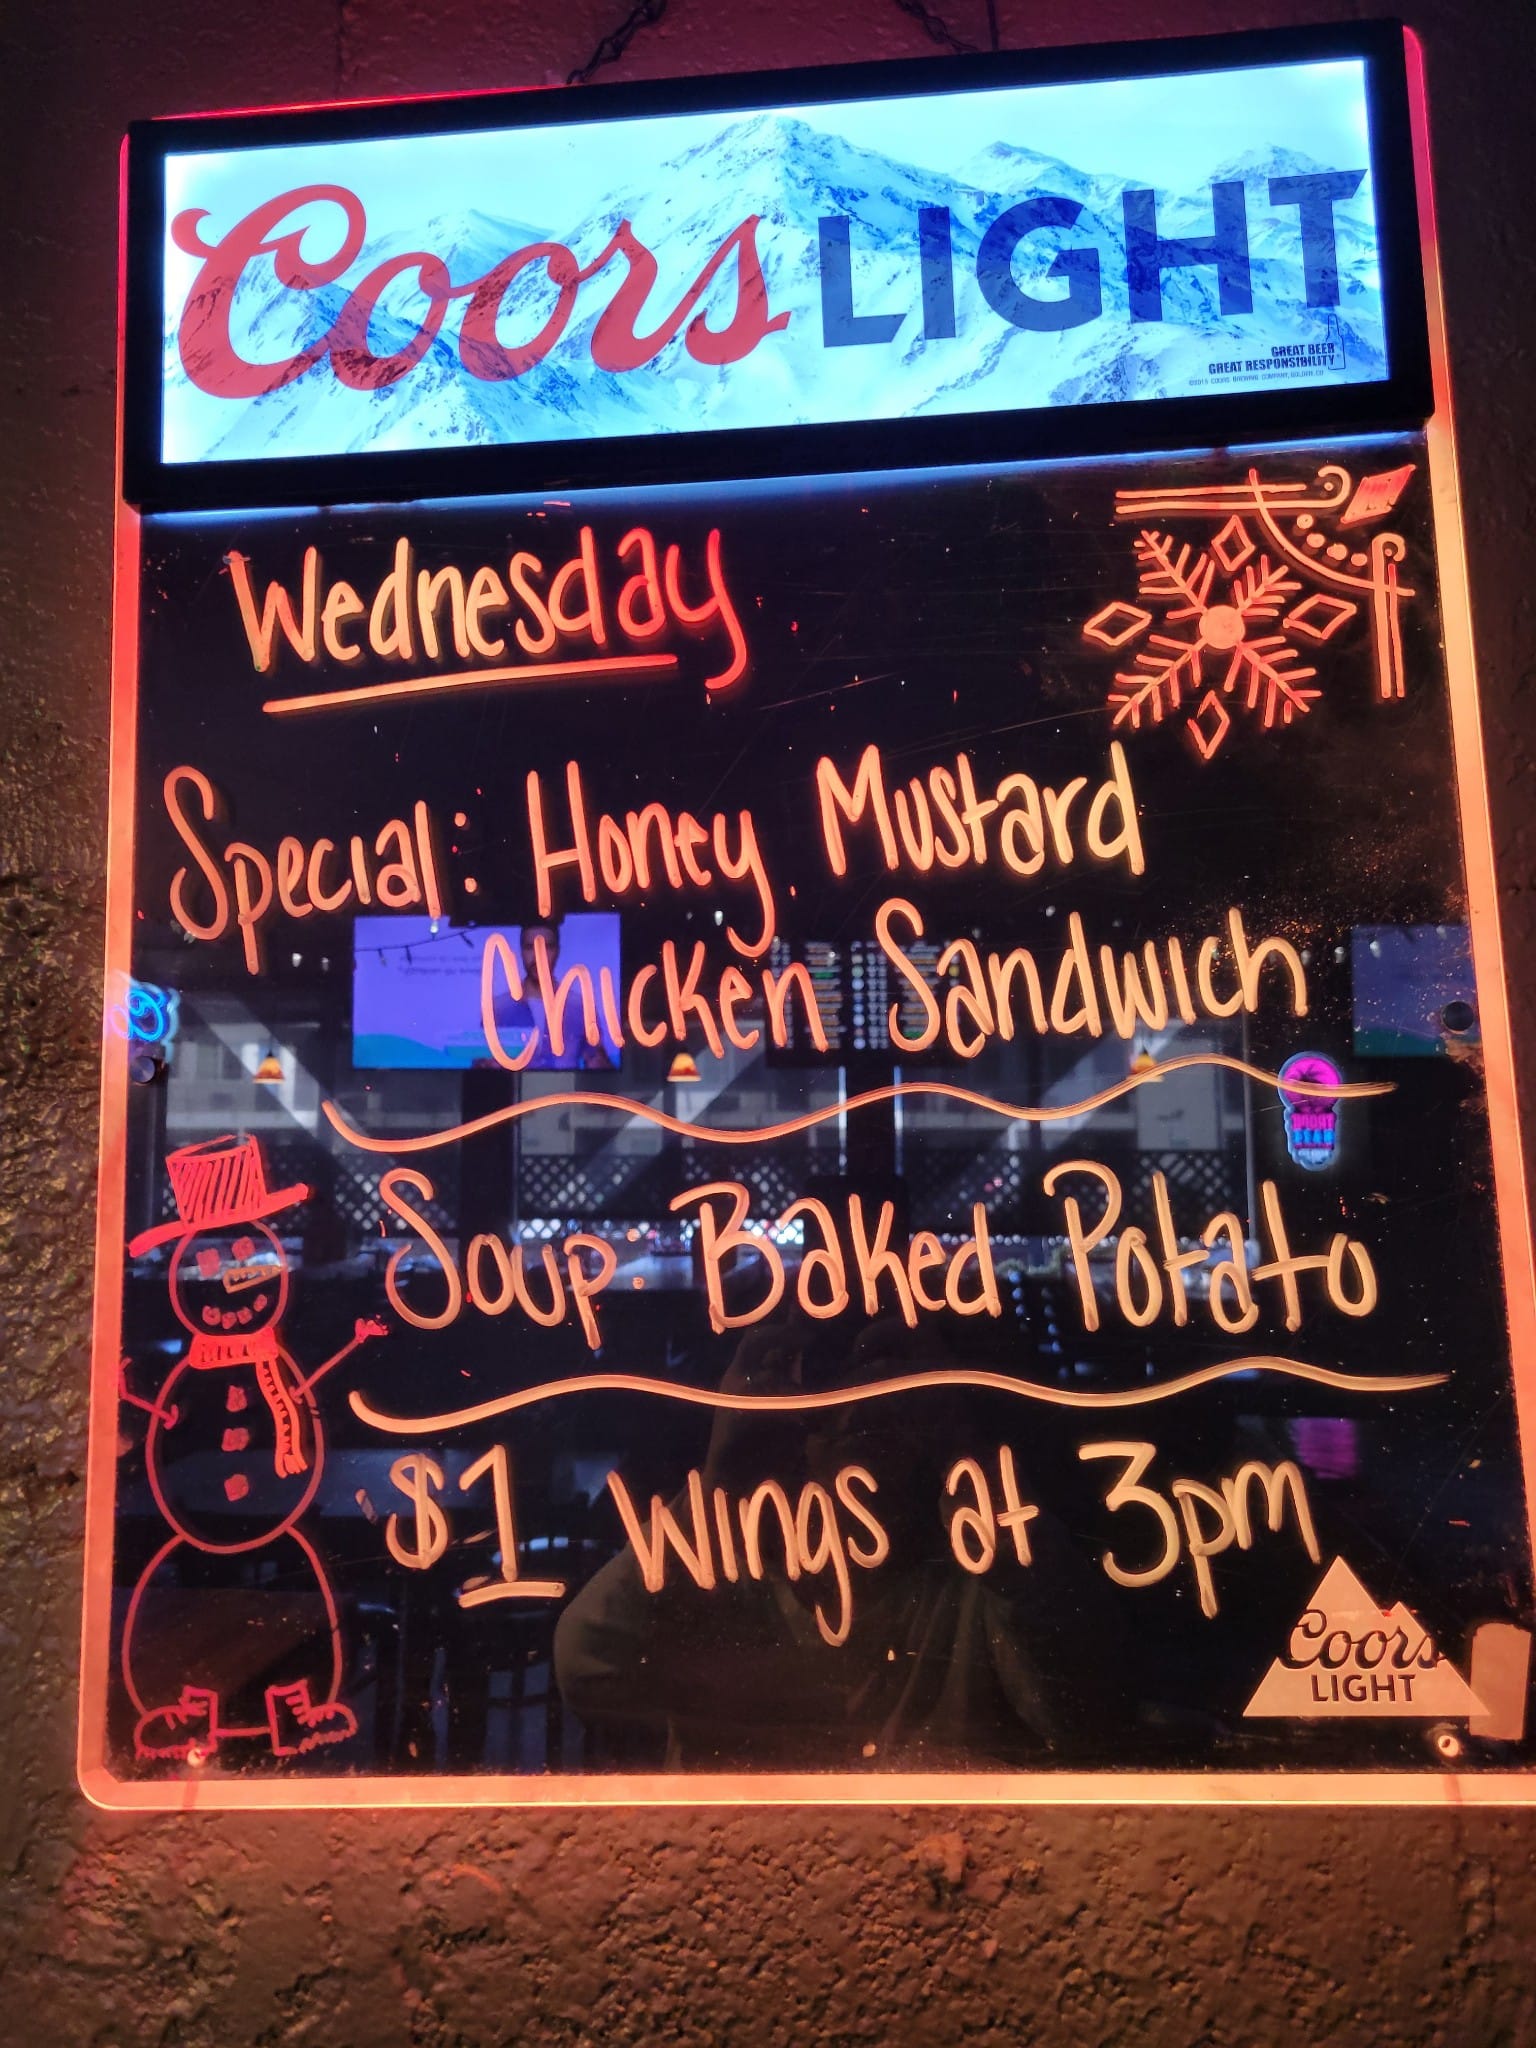 Coors LIGHT
GREAT BEER
GREAT RESPONSIBILITY
©2015 COORS BREWING COMPANY, GOLDEN, CO
Wednesday
Special: Honey Mustard
Chicken Sandwich
Soup Baked Potato
$1 Wings at 3pm
Coors
LIGHT